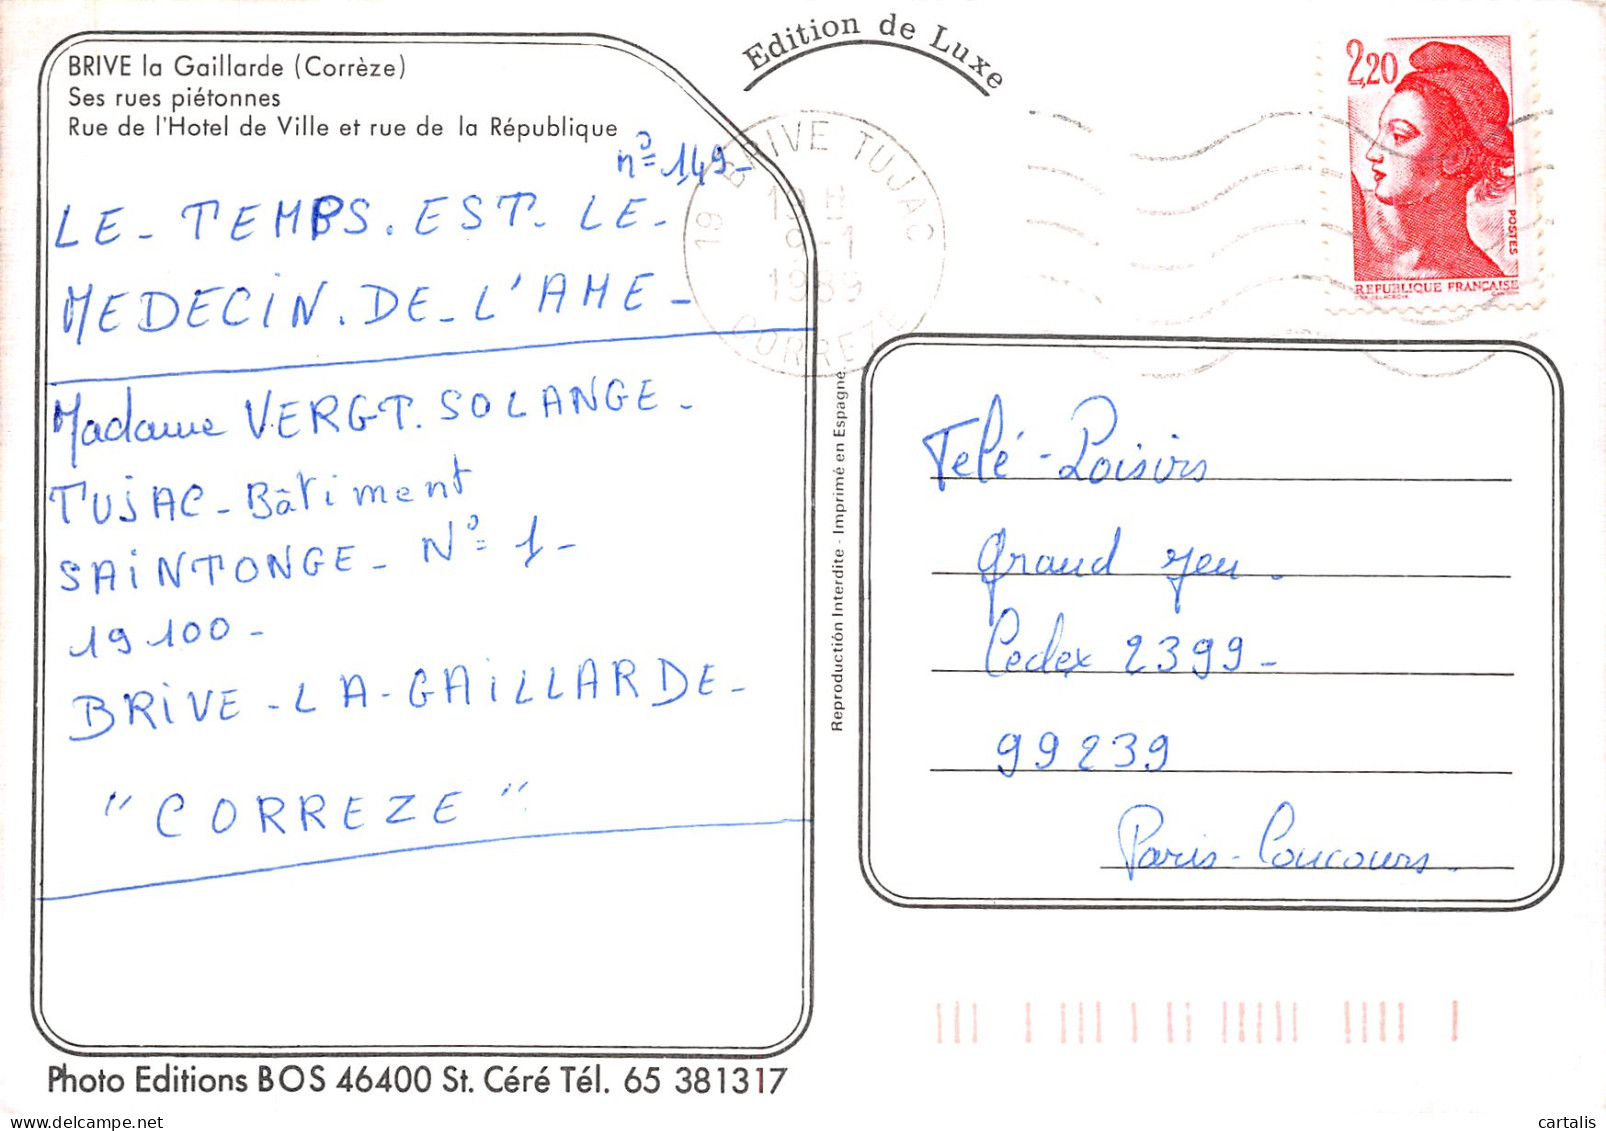 BRIVE la Gaillarde (Corrèze)
Ses rues piétonnes
Rue de l'Hotel de Ville et rue de la République
n°=149-
LE_TEMPS.EST.LE-
MEDECiN.DE_L'AME-
Madame VERGT.SOLANGE-
TUJAC-Bâtiment
SAiNTONGE-N°=1-
19100-
BRiVE-LA-GAiLLARDE-
"CORREZE"
Photo Editions BOS 46400 St. Céré Tél. 65 381317
Edition de Luxe
19 BRIVE TUJAC
19 H
9-1
1989
CORREZE
2,20
POSTES
REPUBLIQUE FRANÇAISE
Reproduction Interdite - Imprimé en Espagne.
Telé-Loisirs
Grand jeu-
Cedex 2399-
99239
Paris-Concours-
cartalis